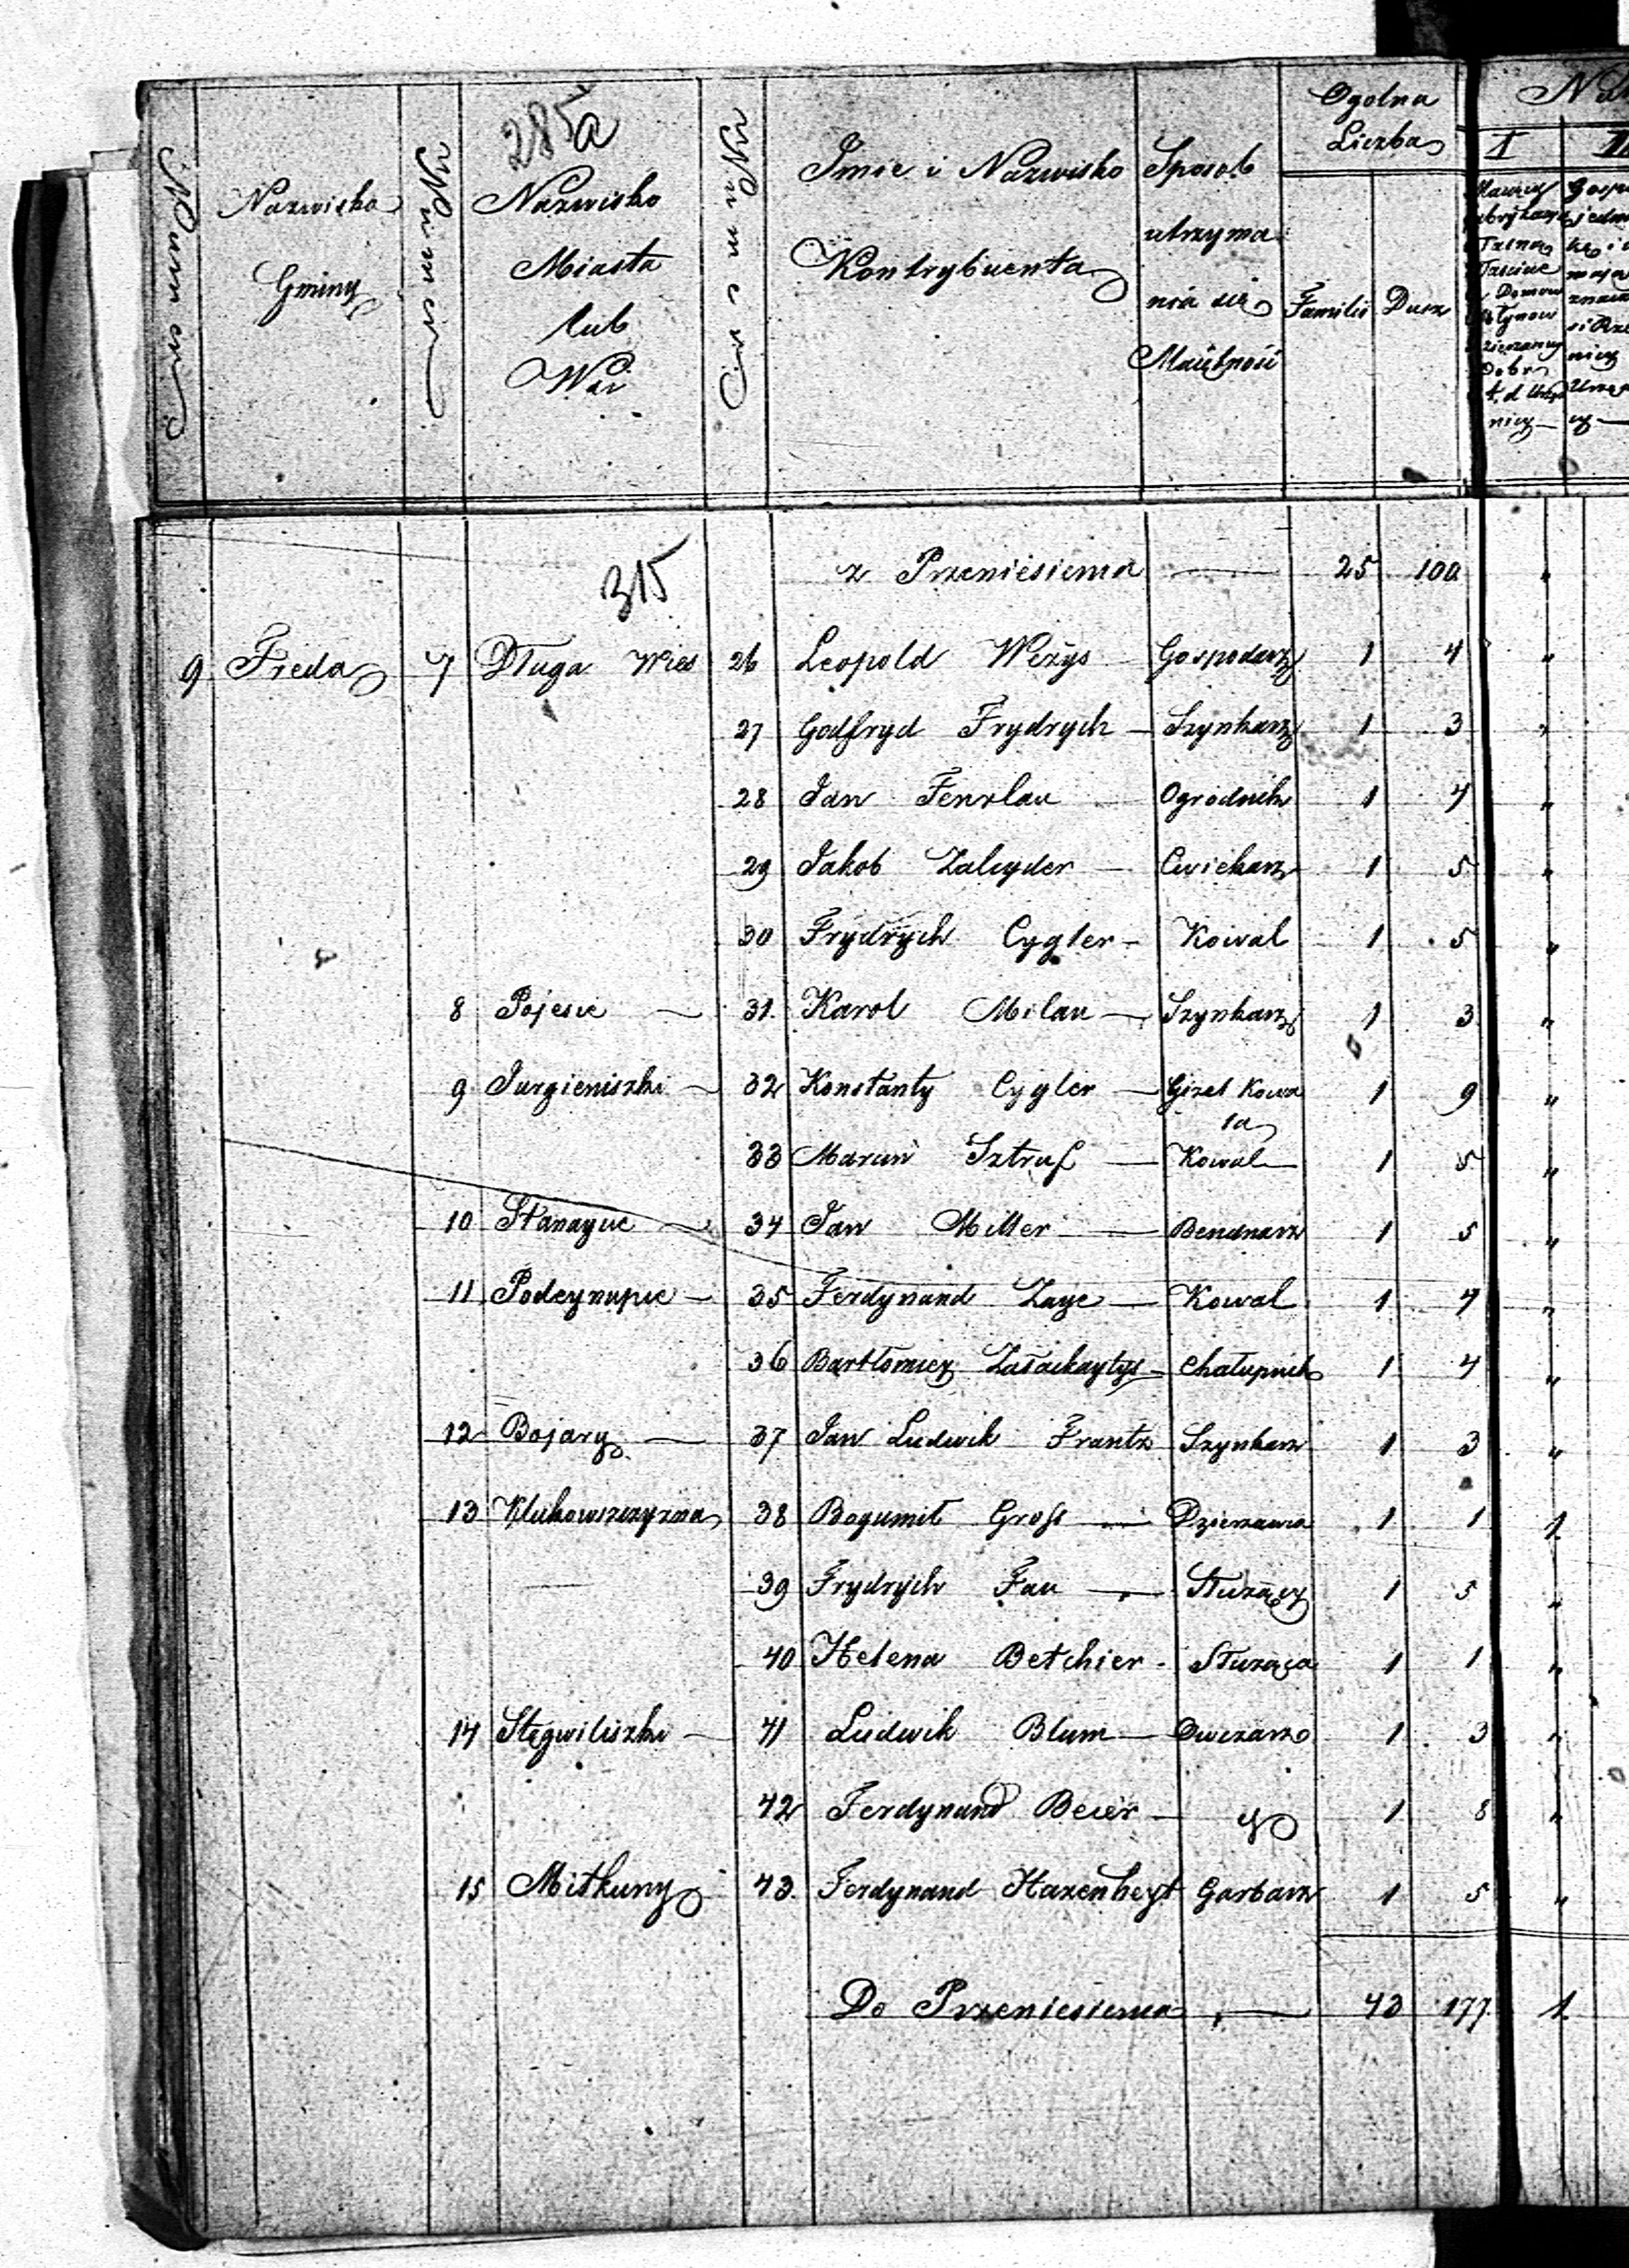 285 a
Numer
Nazwisko Gminy
Numer
Nazwisko Miasta lub Wsi
Numer
Imie i Nazwisko Kontrybuenta
Sposob utrzyma nia się
Ogolna Liczba
Familii Dusz
I
315
z Przeniesienia — 25 100 "
9 Freda 7 Długa Wies 26 Leopold Weżys Gospodarz 1 4 "
27 Godfryd Frydrych — Szynkarz 1 3 "
28 Jan Fenslau — Ogrodnik 1 4 "
29 Jakob Zalcyder — Cwiekarz 1 5 "
30 Frydrych Cygler — Kowal 1 5 "
8 Pojesie — 31. Karol Milau — Szynkarz 1 3 "
9 Jurgieniszki — 32 Konstanty Cygler — Gizel Kowa 1 9 "
la
33 Marcin Sztraf — Kowal 1 5 "
10 Stanayce — 34 Jan Miller — Bendnarz 1 5 "
11 Podeynupie — 35 Ferdynand Zaye — Kowal 1 7 "
36 Bartłomiey — Chałupnik 1 4 "
12 Bojary — 37 Jan Ludwik Frantz Szynkarz 1 3 "
13 Klukowszczyzna 38 Bogumił Groß — Dzierzawca 1 1 1.
39 Frydrych Fau — Służący 1 5 "
40 Helena Betchier - Służąca 1 1 "
14 Stęgwiliszki — 41 Ludwik Blum — Owczarz 1 3 "
42 Ferdynand Beier — 1 8 "
15 Mitkuny 43. Ferdynand Hazenheyt Garbarz 1 5 "
Do Przeniesienia — 43 177 1.